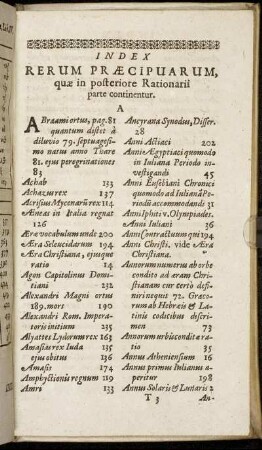 INDEX
RERUM PRÆCIPUARUM,
quæ in posteriore Rationarii
parte continentur.
A
ABraami ortus, pag. 81
quantum distet à
diluvio 79. septuagesi-
mo natus anno Thare
81. ejus peregrinationes
83
Achab 133
Achaz rex 137
Acrisius Mycenarũ rex 114
Æneas in Italia regnat
126
Æræ vocabulum unde 200
Æra Seleucidarum 194
Æra Christiana, ejusque
ratio 14
Agon Capitolinus Domi-
tiani 232
Alexandri Magni ortus
189. mors 190
Alexandri Rom. Impera-
toris initium 235
Alyattes Lydorum rex 163
Amasias rex Iuda 135
ejus obitus 136
Amasis 174
Amphyctionis regnum 119
Amri 133
Ancyrana Synodus, Differ.
28
Anni Actiaci 202
Annis Ægyptiaci quomodo
in Iuliana Periodo in-
vestigandi 45
Anni Eusebiani Chronici
quomodo ad Iulianã Pe-
riodũ accommodandi 31
Anni Iphiti v. Olympiades.
Anni Iuliani 36
Anni contractuum qui 194
Anni Christi, vide Æra
Christiana.
Annorum numerus ab orbe
condito ad æram Chri-
stianam cur certò defi-
niri nequit 72. Græco-
rum ab Hebræis & La-
tinis codicibus discri-
men 73
Annorum urbis conditæ ra-
tio 35
Annus Atheniensium 16
Annus primus Iulianus a-
peritur 198
Annus Solaris & Lunaris 2
T 3 An-